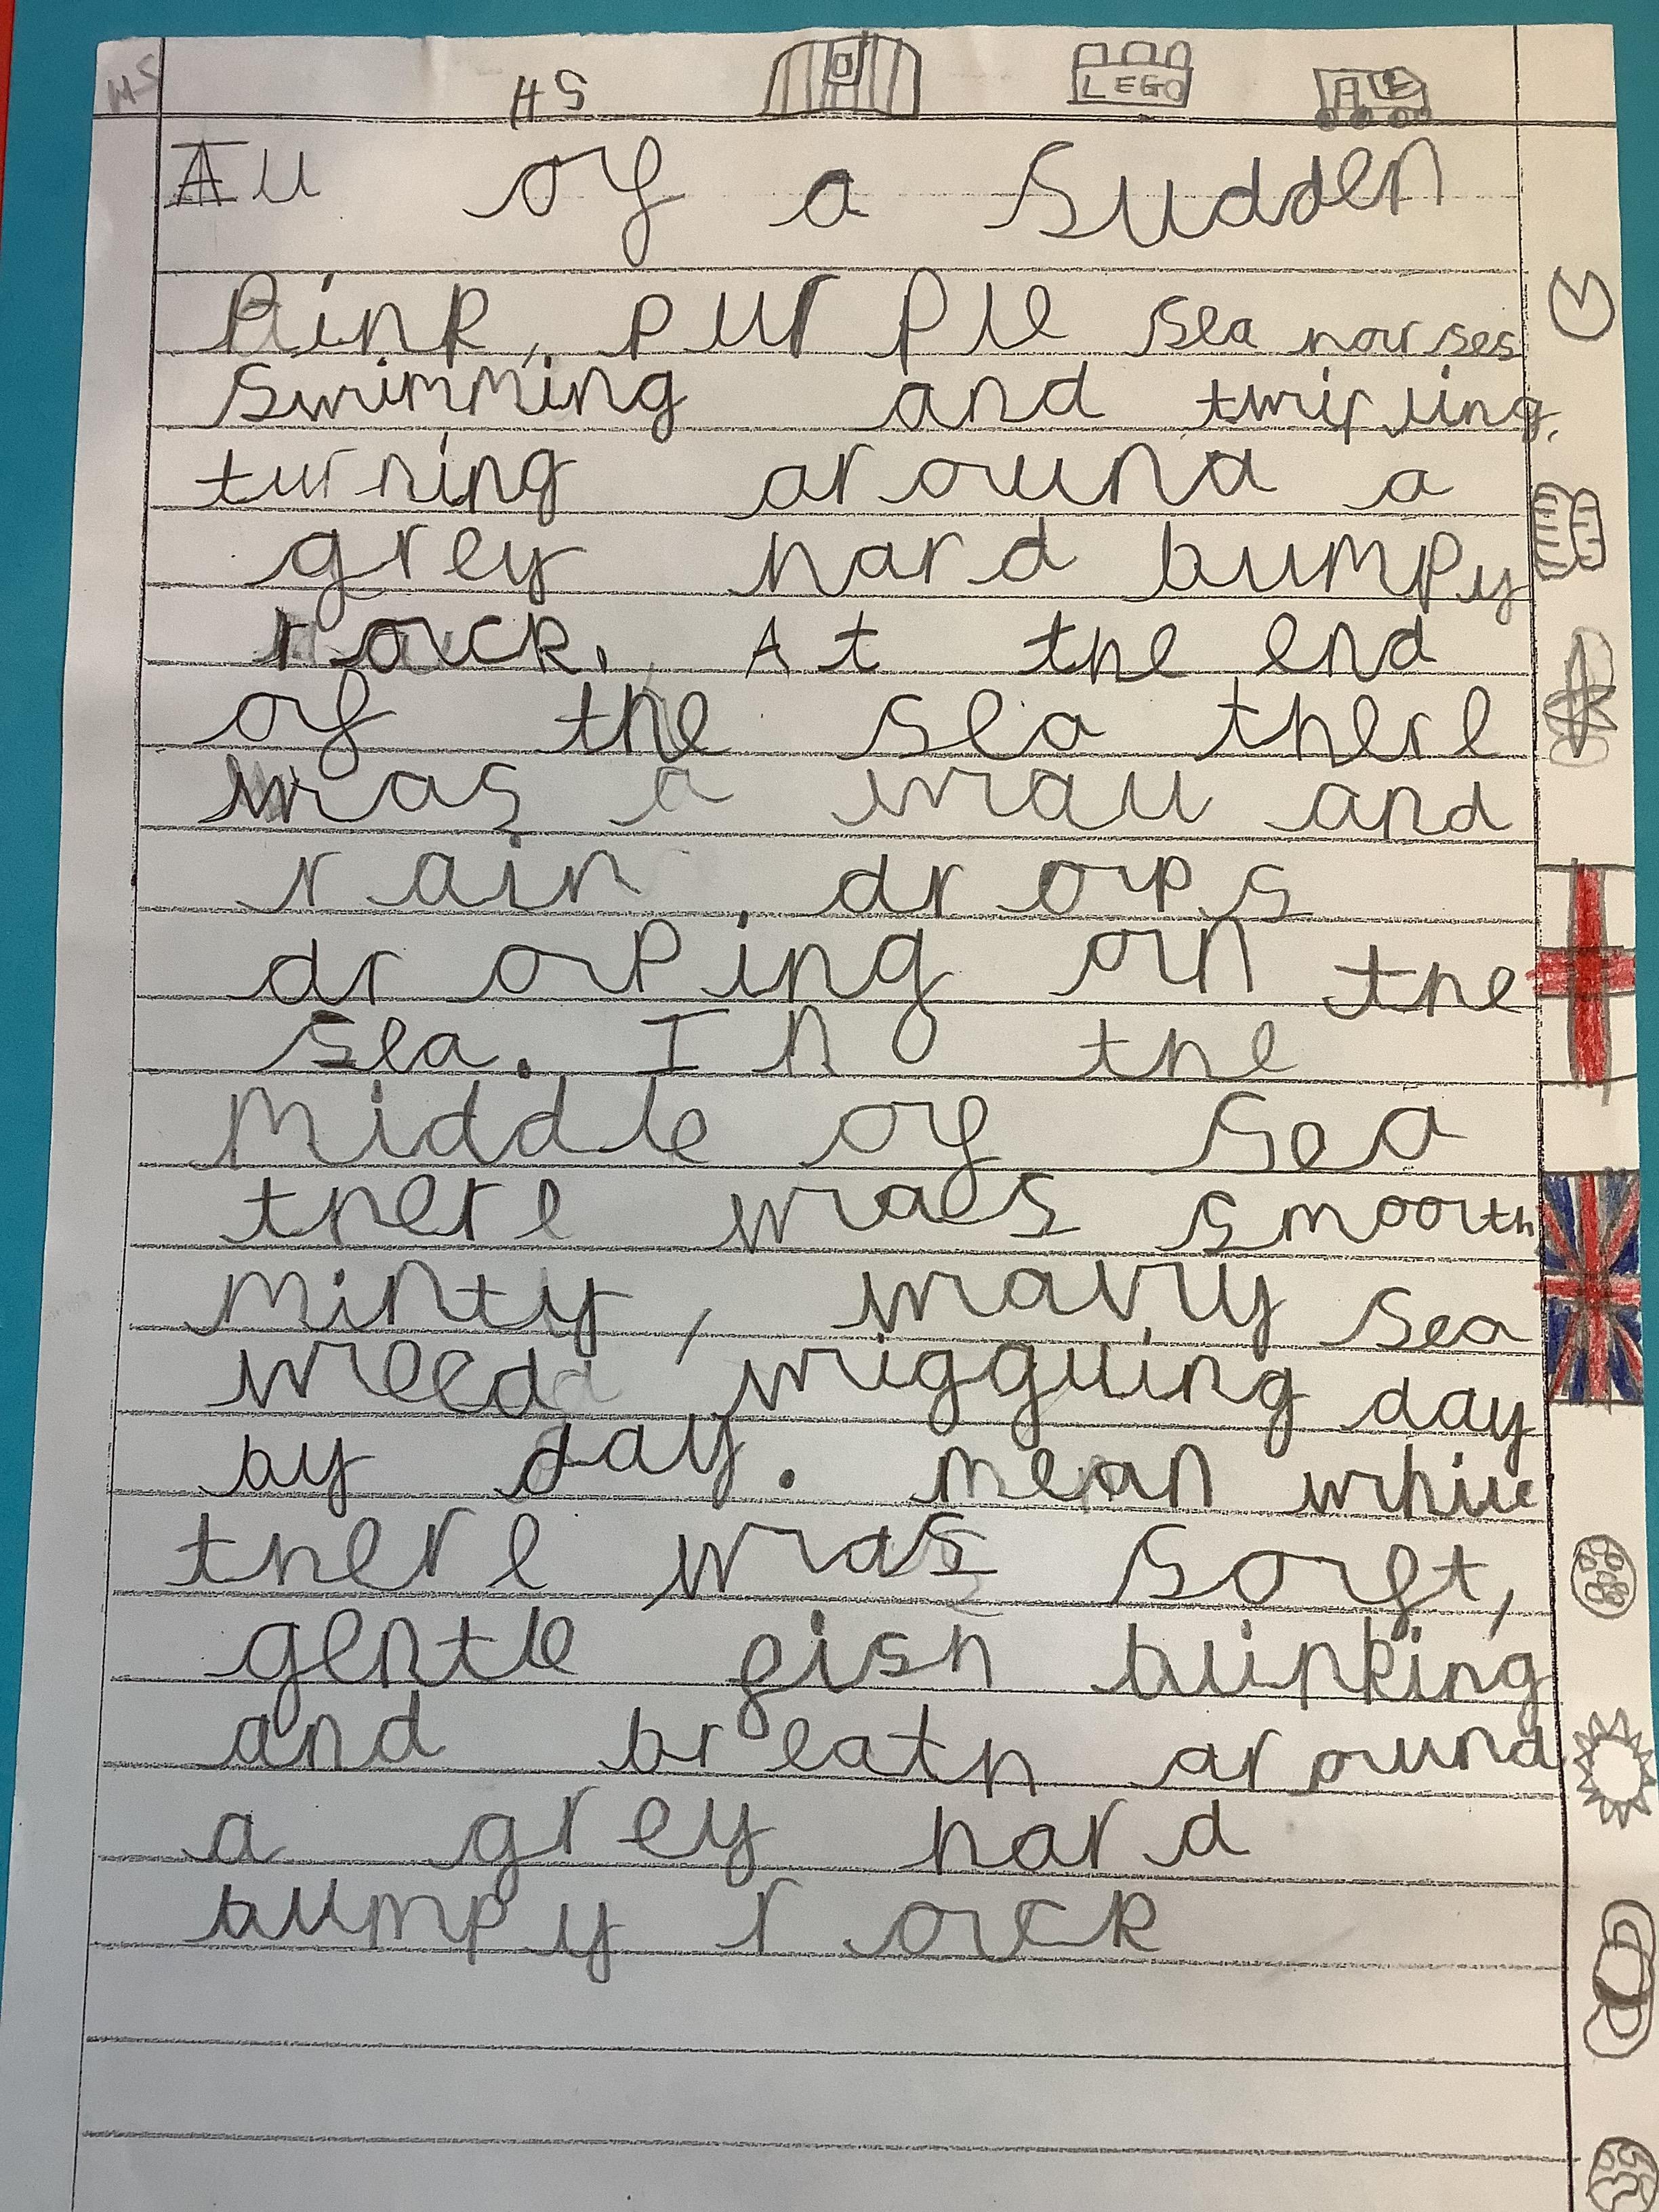 HS HS LEGO
All of a sudden
Pink, purple sea hourses
swimming and twirling,
turning around a
grey hard bumpy
rock. At the end
of the sea there
was a wall and
rain drops
droping on the
sea. In the
middle of sea
there was smooth
minty, wavy sea
weed wiggling day
by day. mean while
there was soft,
gentle fish blinking
and breath around
a grey hard
bumpy rock